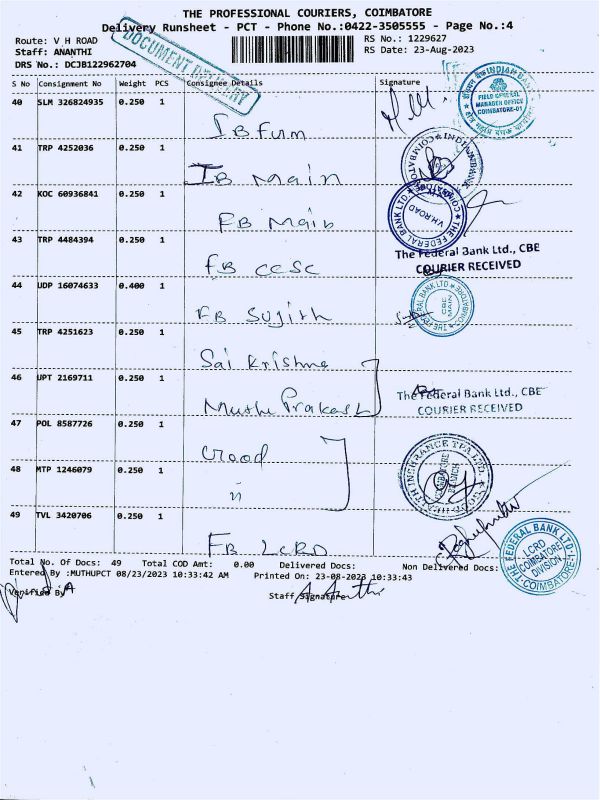 THE PROFESSIONAL COURIERS, COIMBATORE
Delivery Runsheet - PCT - Phone No.:0422-3505555 - Page No.:4
Route: V H ROAD
RS No.: 1229627
Staff: ANANTHI
RS Date: 23-Aug-2023
DRS No.: DCJB122962704
DOCUMENT DELIVERY
S No Consignment No Weight PCS Consignee Details Signature
40 SLM 326824935 0.250 1
IB
INDIAN BANK
FIELD GENERAL
MANAGER OFFICE
COIMBATORE-01
41 TRP 4252036 0.250 1 IB Main
INDIAN BANK
42 KOC 60936841 0.250 1 FB Main
THE FEDERAL BANK LTD
V.H.ROAD
43 TRP 4484394 0.250 1 FB CCSC
The Federal Bank Ltd., CBE
COURIER RECEIVED
44 UDP 16074633 0.400 1 FB Sujith
45 TRP 4251623 0.250 1 Sai Krishna
46 UPT 2169711 0.250 1 Muthu Prakash
The Federal Bank Ltd., CBE
COURIER RECEIVED
47 POL 8587726 0.250 1
48 MTP 1246079 0.250 1 "
49 TVL 3420706 0.250 1 FB LCRD
THE FEDERAL BANK LTD.
LCRD
COIMBATORE
DIVISION
COIMBATORE
Total No. Of Docs: 49 Total COD Amt: 0.00 Delivered Docs: Non Delivered Docs:
Entered By :MUTHUPCT 08/23/2023 10:33:42 AM Printed On: 23-08-2023 10:33:43
Verified By
Staff Signature